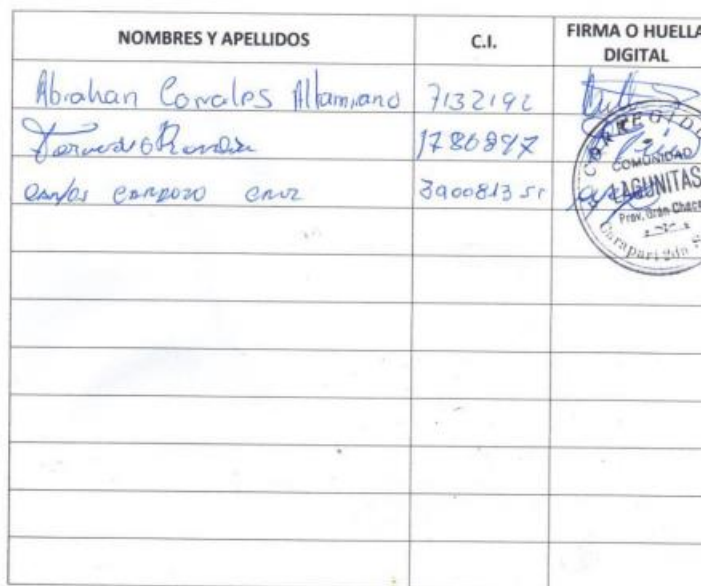 NOMBRES Y APELLIDOS C.I. FIRMA O HUELLA DIGITAL
Abrahan Corrales Altamirano 7132192
1786897
Carlos Cardozo Cruz 3900813 sc
CORREGIDO
COMUNIDAD
LAGUNITAS
Prov. Gran Chaco
Carapari 2da